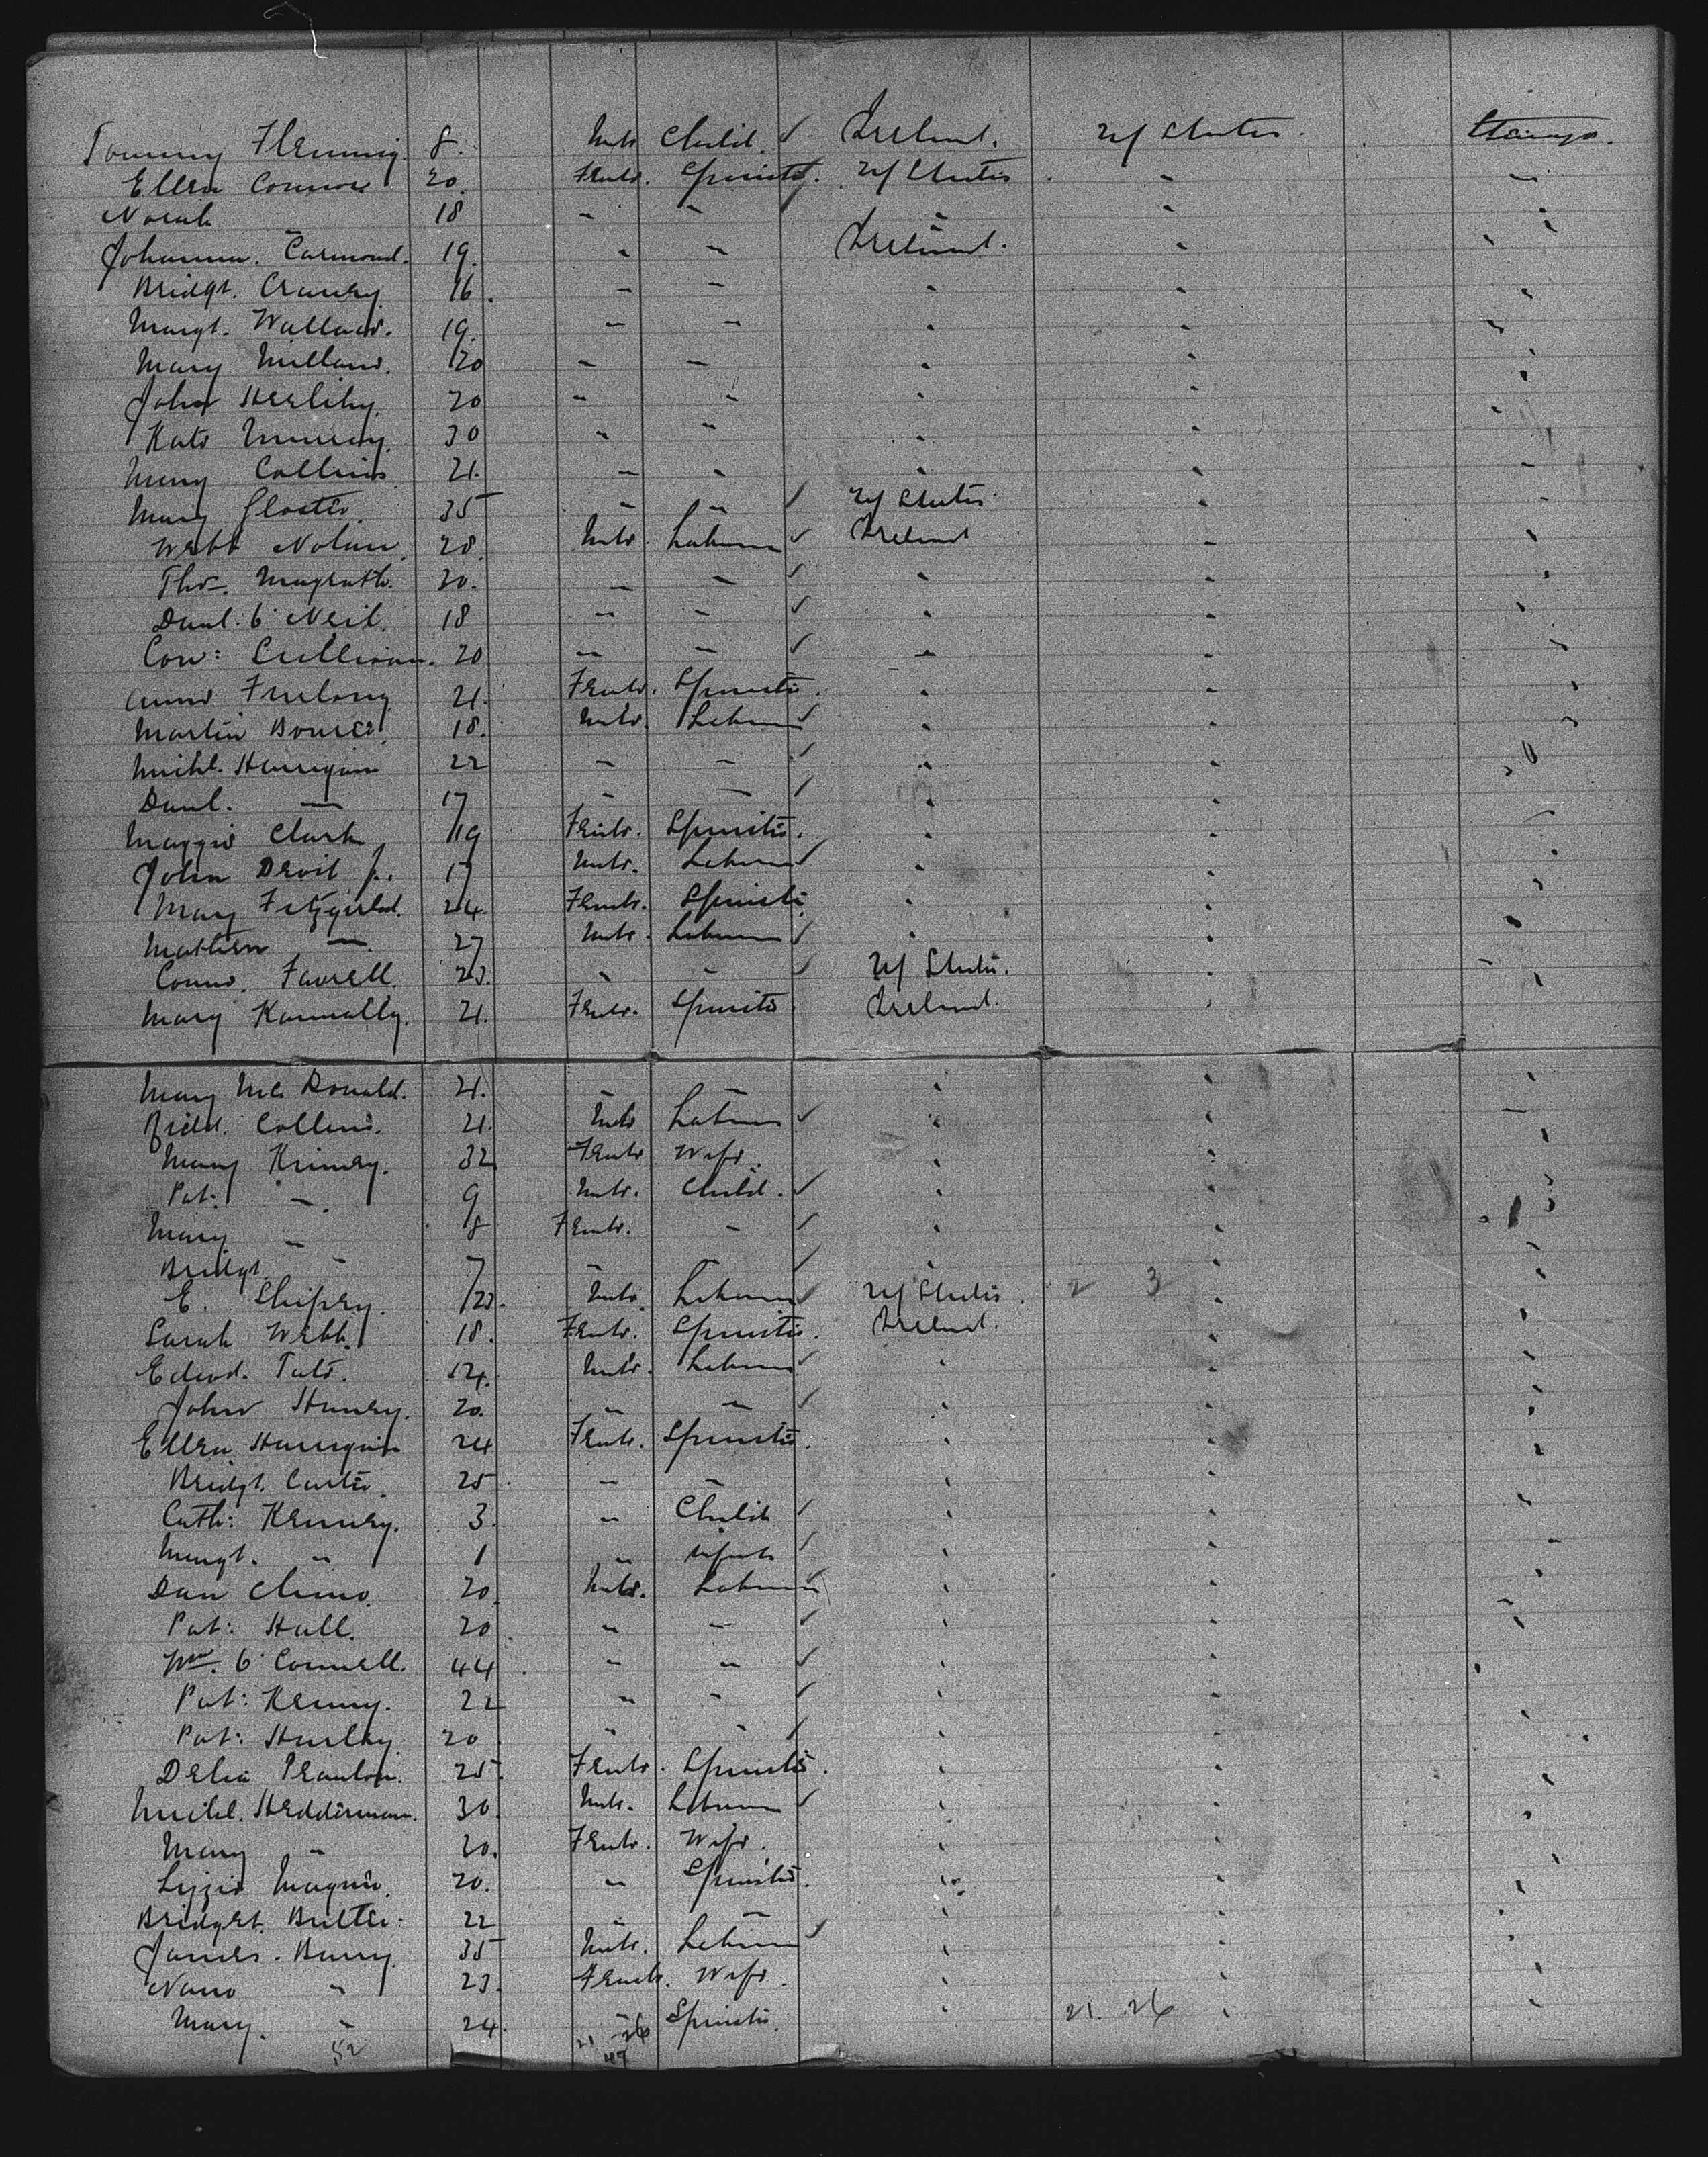 Tommy Fleming. 8. Male Child. ✓ Ireland. U/States. Steerage.
Ellen Connor 20. Female. Spinster. U/States " "
Norah " 18 " " " " "
Johanna. 19. " " Ireland. " "
Bridgt. 16. " " " " "
Margt. Wallace. 19. " " " " "
Mary 20 " " " " "
John Herlihy. 20 " " " " "
Kate 30 " " " " "
Mary Collins 21. " " " " "
Mary Gloster. 35 " " ✓ U/States "
Webb Nolan. 28. Male. Laborer ✓ Ireland " "
Thos. Magrath. 20. " " ✓ " " "
Danl. O'Neil. 18 " " ✓ " " "
Con: Sullivan. 20 " " ✓ " " "
Annie Furlong 21. Female. Spinster. " " "
Martin 18. Male. Laborer ✓ " " "
Michl. Hannigan 22 " " ✓ " " "
Danl. " 17 " " ✓ " " "
Maggie Clark 19 Female. Spinster. " " "
John Devit Jr. 17 Male. Laborer ✓ " " "
Mary Fitzgerald. 24. Female. Spinster " " "
Mathew " 27 Male. Laborer ✓ " " "
Farrell. 23. " " ✓ U/States. " "
Mary Kannally. 21. Female. Spinster. Ireland. " "
Mary McDonald. 21. " " " " "
Collins. 21. Male Laborer ✓ " " "
Mary 32 Female Wife. " " "
Pat. " 9 Male. Child. ✓ " " "
Mary " 8 Female. " ✓ " " "
Bridgt. " 7 " " ✓ " " "
E. 23. Male. Laborer ✓ U/States. 2 3 " "
Sarah Webb. 18. Female. Spinster. Ireland. " "
Edwd. Tate. Male. Laborer ✓ " " "
John 20. " " ✓ " " "
Ellen Hannigan 24 Female. Spinster. " " "
Bridgt. Carter. 25 " " " " "
Cath: Kenney. 3. " Child ✓ " " "
Margt. " 1 " infant ✓ " " "
Dan 20. Male. Laborer ✓ " " "
Pat: Hall. 20 " " ✓ " " "
Wm. O'Connell. 44 " " ✓ " " "
Pat: Kenny. 22 " " ✓ " " "
Pat: Hurley. 20 " " ✓ " " "
Delia 25. Female. Spinster. " " "
Michl. Hedderman. 30. Male. Laborer ✓ " " "
Mary " 20. Female. Wife. " " "
Lizzie Maguire. 20. " Spinster. " " "
Bridget. 22 " " " " "
James. Barry. 35 Male. Laborer ✓ " " "
Nano " 23. Female. Wife. " " "
Mary. " 24. " Spinster. " 21. 26 " "
52 21 26
49